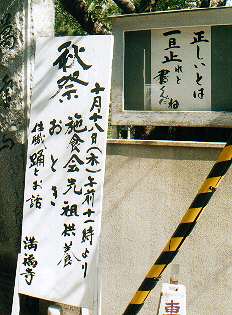 正しいとは
一旦止れと
書くんだね
秋祭
十月十八日(木)午前十一時より
施食会元祖供養
おとき
住職 踊とお話
満福寺
車